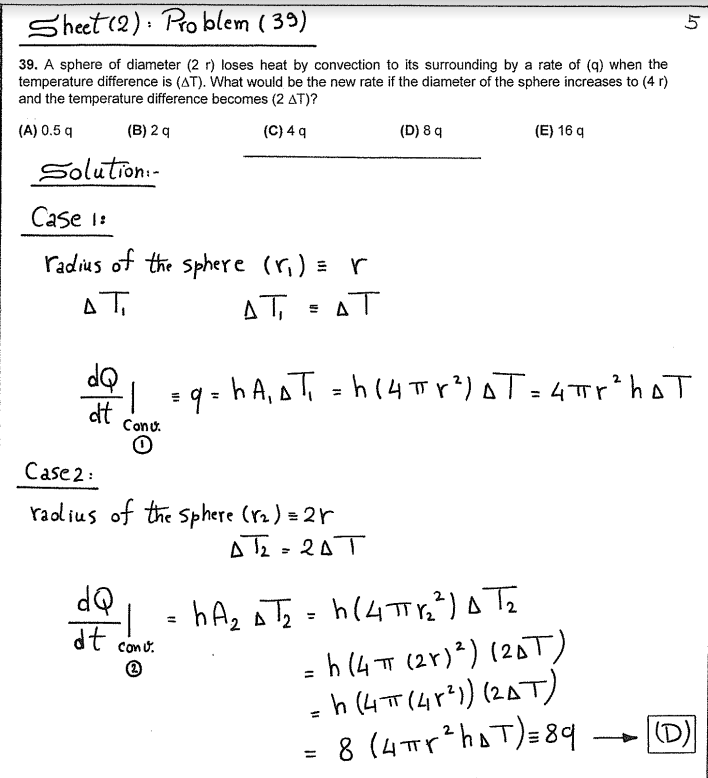 Sheet(2): Problem (39)
5
39. A sphere of diameter (2 r) loses heat by convection to its surrounding by a rate of (q) when the
temperature difference is (ΔT). What would be the new rate if the diameter of the sphere increases to (4 r)
and the temperature difference becomes (2 ΔT)?
(A) 0.5 q (B) 2 q (C) 4 q (D) 8 q (E) 16 q
Solution:-
Case 1:
radius of the sphere (r₁) = r
ΔT₁ ΔT₁ = ΔT
dQ/dt | Conv. ① = q = hA₁ΔT₁ = h(4πr²)ΔT = 4πr²hΔT
Case 2:
radius of the sphere (r₂) = 2r
ΔT₂ = 2ΔT
dQ/dt | conv. ② = hA₂ΔT₂ = h(4πr₂²)ΔT₂
= h(4π(2r)²)(2ΔT)
= h(4π(4r²))(2ΔT)
= 8(4πr²hΔT) = 8q → (D)